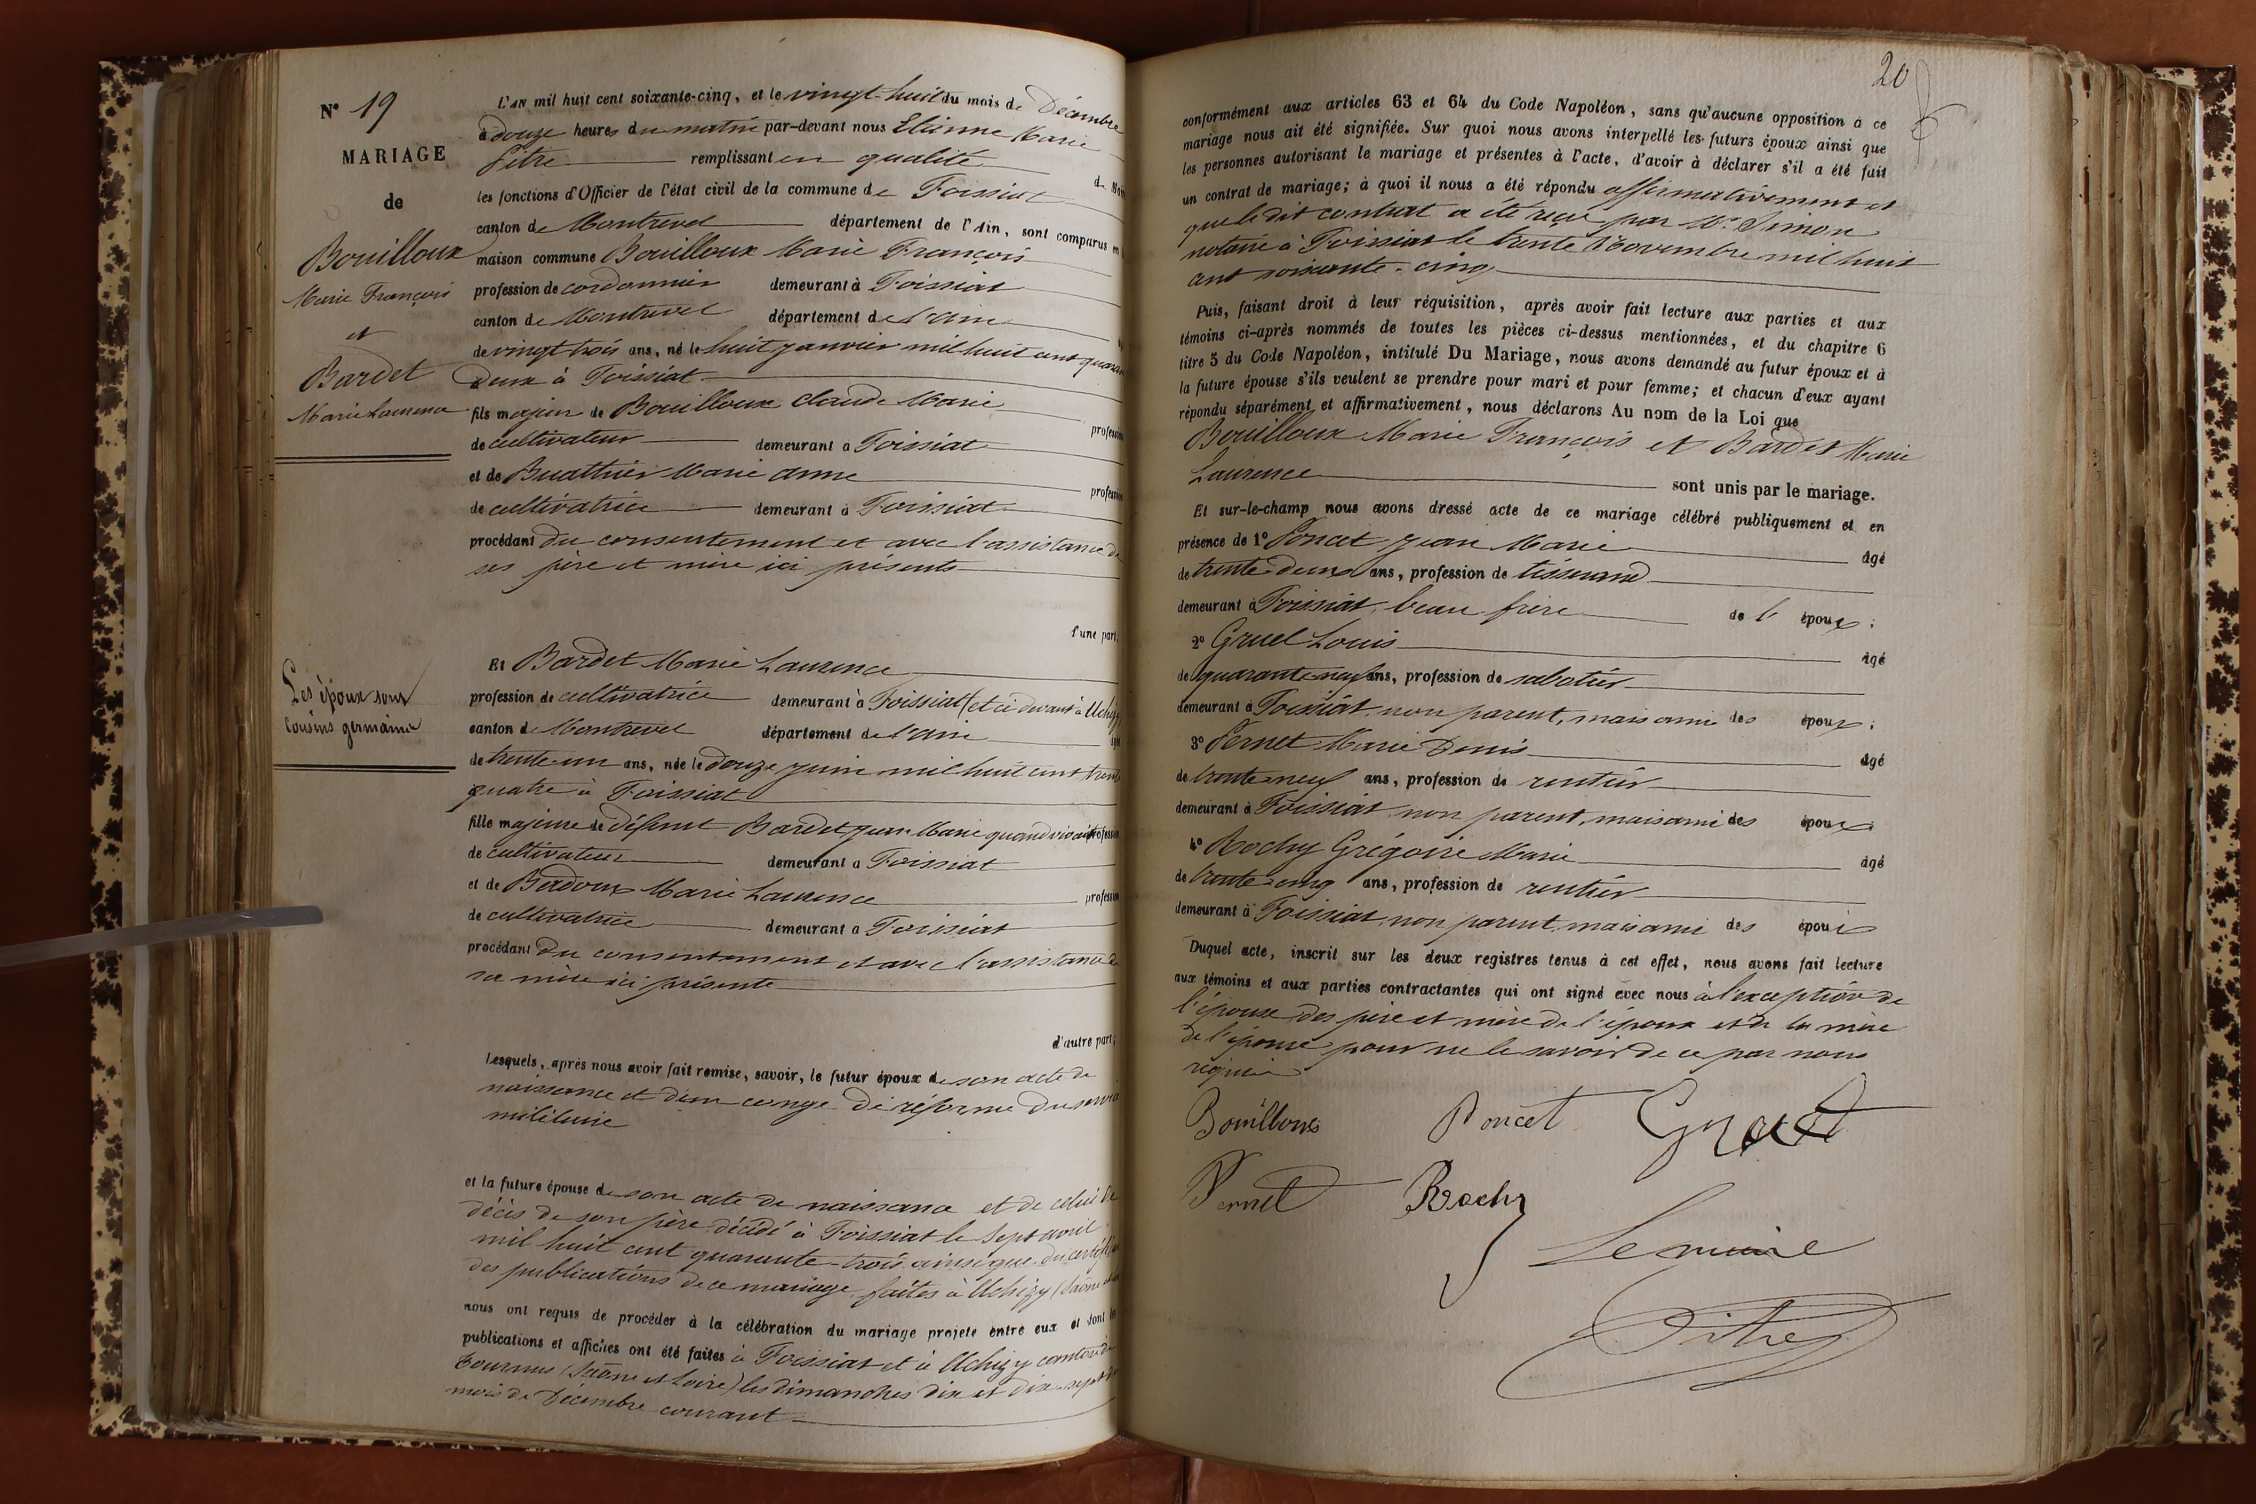 N° 19
MARIAGE
de
Bouilloux
Marie François
et
Bardet
Marie Laurence
Les époux sont
cousins germains
L'AN mil huit cent soixante-cinq, et le vingt-huit du mois de Décembre
à douze heures du matin par-devant nous Etienne Marie
Pitre remplissant en qualité de
les fonctions d'Officier de l'état civil de la commune de Foissiat
canton de Montrevel département de l'Ain, sont comparus en
maison commune Bouilloux Marie François
profession de cordonnier demeurant à Foissiat
canton de Montrevel département de l'ain
de vingt trois ans, né le huit janvier mil huit cent quarante
deux à Foissiat
fils majeur de Bouilloux Claude Marie profession
de cultivateur demeurant à Foissiat
et de Buathier Marie anne profession
de cultivatrice demeurant à Foissiat
procédant du consentement et avec l'assistance de
ses père et mère ici présents
d'une part,
Et Bardet Marie Laurence
profession de cultivatrice demeurant à Foissiat (et ci devant à Uchizy
canton de Montrevel département de l'ain
de trente-un ans, née le douze juin mil huit cent trente
quatre à Foissiat
fille majeure de défunt Bardet Jean Marie quand vivait profession
de cultivateur demeurant à Foissiat
et de Berdoux Marie Laurence profession
de cultivatrice demeurant à Foissiat
procédant du consentement et avec l'assistance de
sa mère ici présente
d'autre part;
Lesquels, après nous avoir fait remise, savoir, le futur époux de son acte de
naissance et d'un congé de réforme du service
militaire
et la future épouse de son acte de naissance et de celui de
décès de son père décédé à Foissiat le sept avril
mil huit cent quarante-trois ainsi que du certificat
des publications de ce mariage faites à Uchizy (Saône et
nous ont requis de procéder à la célébration du mariage projeté entre eux et dont les
publications et affiches ont été faites à Foissiat et à Uchizy canton de
Tournus (Saône et Loire) les dimanches dix et dix-sept du
mois de Décembre courant
20
conformément aux articles 63 et 64 du Code Napoléon, sans qu'aucune opposition à ce
mariage nous ait été signifiée. Sur quoi nous avons interpellé les futurs époux ainsi que
les personnes autorisant le mariage et présentes à l'acte, d'avoir à déclarer s'il a été fait
un contrat de mariage; à quoi il nous a été répondu affirmativement et
que le dit contrat a été reçu par Me Simon
notaire à Foissiat le trente Novembre mil huit
cent soixante-cinq
Puis, faisant droit à leur réquisition, après avoir fait lecture aux parties et aux
témoins ci-après nommés de toutes les pièces ci-dessus mentionnées, et du chapitre 6
titre 5 du Code Napoléon, intitulé Du Mariage, nous avons demandé au futur époux et à
la future épouse s'ils veulent se prendre pour mari et pour femme; et chacun d'eux ayant
répondu séparément et affirmativement, nous déclarons Au nom de la Loi que
Bouilloux Marie François et Bardet Marie
Laurence sont unis par le mariage.
Et sur-le-champ nous avons dressé acte de ce mariage célébré publiquement et en
présence de 1° Poncet Jean Marie âgé
de trente-deux ans, profession de tisserand
demeurant à Foissiat, beau frère de l' époux;
2° Gruel Louis âgé
de quarante-neuf ans, profession de sabotier
demeurant à Foissiat, non parent, mais ami des époux;
3° Pernet Marie Denis âgé
de trente-neuf ans, profession de rentier
demeurant à Foissiat non parent, mais ami des époux;
4° Rochy Grégoire Marie âgé
de trente-cinq ans, profession de rentier
demeurant à Foissiat, non parent, mais ami des époux
Duquel acte, inscrit sur les deux registres tenus à cet effet, nous avons fait lecture
aux témoins et aux parties contractantes qui ont signé avec nous à l'exception de
l'épouse, des père et mère de l'époux et de la mère
de l'épouse pour ne le savoir de ce par nous
requis
Bouilloux Poncet Gruel
Pernet Rochy
Le maire
Pitre